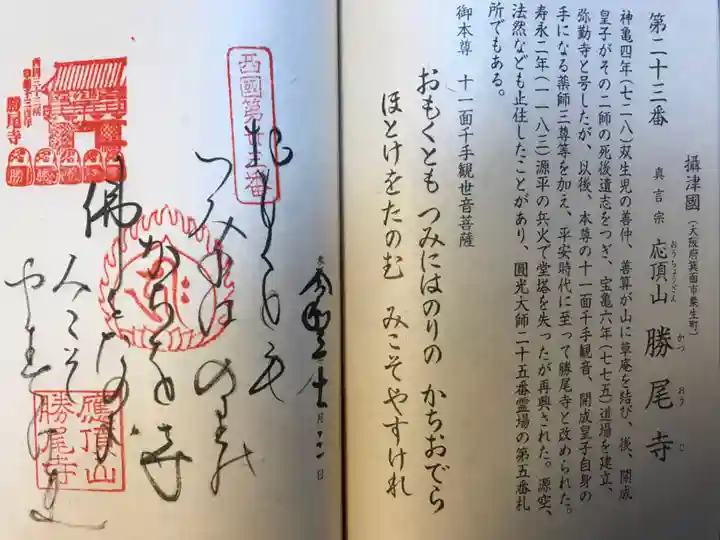 第二十三番
攝津國
(大阪府箕面市粟生町)
真言宗
応頂山
おうちょうざん
勝尾寺
かつおうじ
神亀四年(七二八)双生児の善仲、善算が山に草庵を結び、後、開成
皇子がその二師の死後遺志をつぎ、宝亀六年(七七五)道場を建立、
弥勤寺と号したが、以後、本尊の十一面千手観音、開成皇子自身の
手になる薬師三尊等を加え、平安時代に至って勝尾寺と改められた。
寿永二年(一一八三)源平の兵火で堂塔を失ったが再興された。源空、
法然なども止住したことがあり、圓光大師二十五番霊場の第五番札
所でもある。
御本尊 十一面千手観世音菩薩
おもくとも つみにはのりの かちおでら
ほとけをたのむ みこそやすけれ
月 日
西國第廿三番
おもくとも
つみには のりの
かちを寺
佛をたのむ
みこそ
やすけれ
應頂山
勝尾寺
勝尾寺